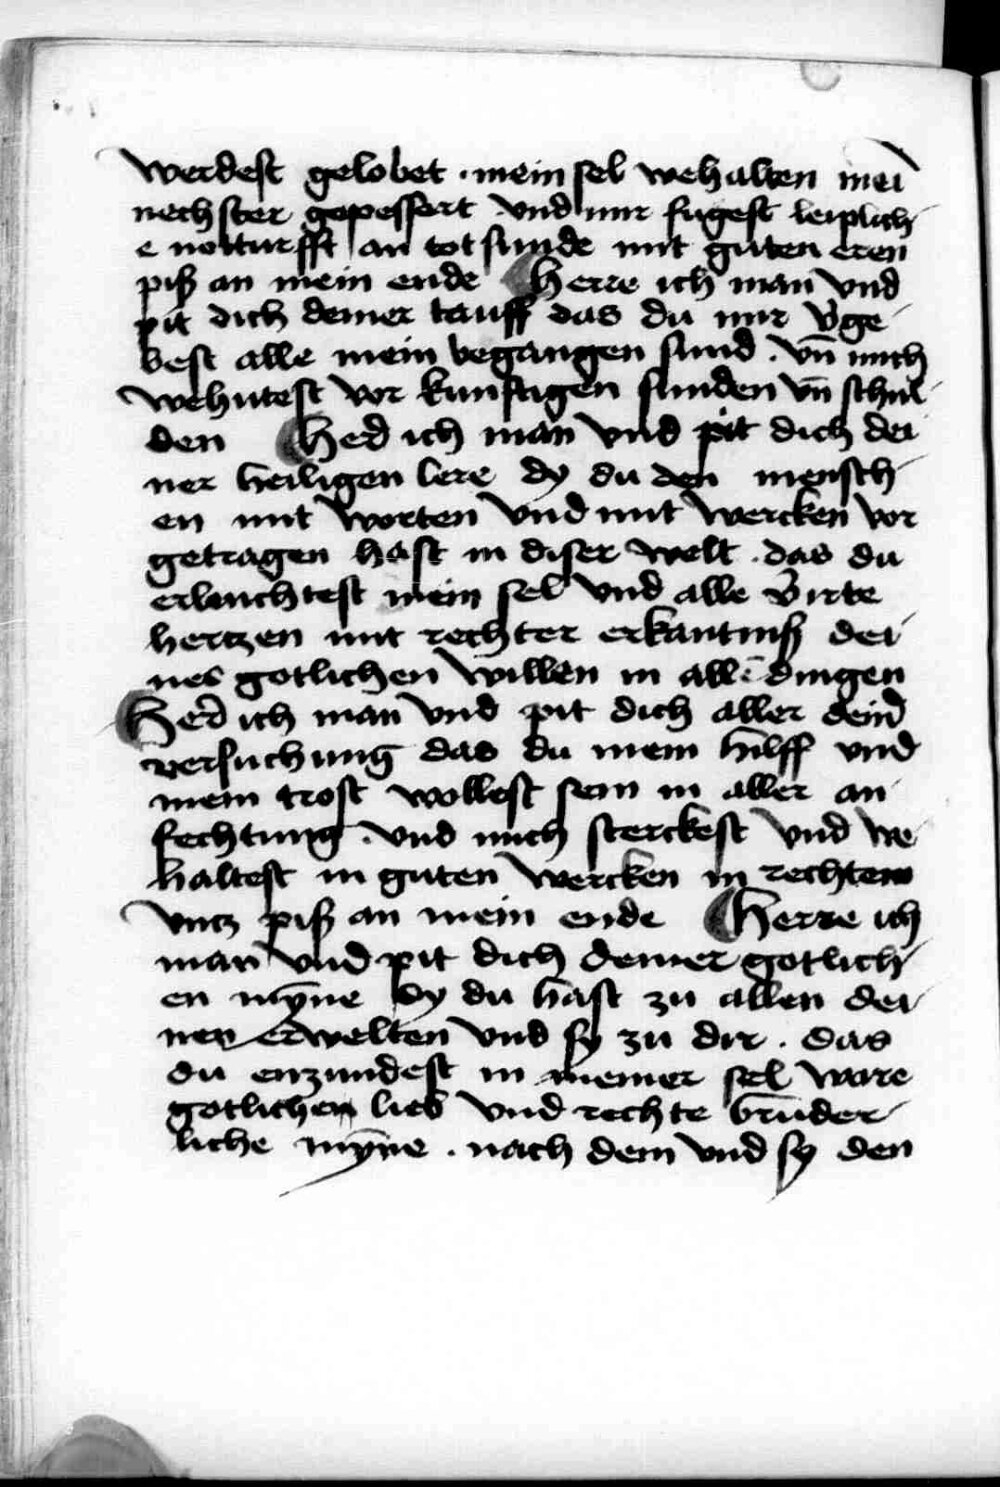 werdest gelobet . mein sel wehalten mei͂
nechster gepessert vnd mir fugest leiplich
e notturfft an totsunde mit guten eren
piß an mein ende Herre ich man vnd
pit dich deiner tauff das du mir v̾ge
best alle mein begangen sund . vn̄ mich
wehutest vor kunftigen sunden vn̄ schul
den Her̾ ich man vnd pit dich dei
ner heiligen lere dy du den mensch
en mit worten vnd mit wercken vor
getragen hast in diser welt . das du
erleuchtest mein sel vnd alle v̾irte
hertzen mit rechter erkantniß dei
nes gotlichen willen in alle͂ dingen
Her̾ ich man vnd pit dich aller dein̾
versuchung das du mein hilff vnd
mein trost wollest sein in aller an
fechtung . vnd mich sterckest vnd we
haltest in guten wercken in rechtem
vntz piß an mein ende Herre ich
man vnd pit dich deiner gotlich
en myn̄e dy du hast zu allen dei
nen erwelten vnd sy zu dir . das
du enzundest in meiner sel ware
gotlichen lieb vnd rechte bruder
liche myn̄e . nach dem vnd sy den